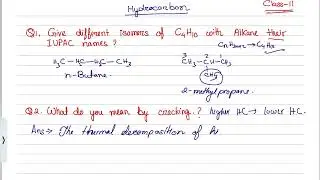 Hydrocarbon
Class-11
Q1. Give different isomers of C4H10 with Alkane their
IUPAC names?
CnH2n+2 → C4H10
H3C - H2C - CH2 - CH3
n-Butane
3CH3 - 2CH - 1CH3
CH3
2-methylpropane.
Q2. What do you mean by cracking? higher HC → lower HC.
Ans → The thermal decomposition of hi